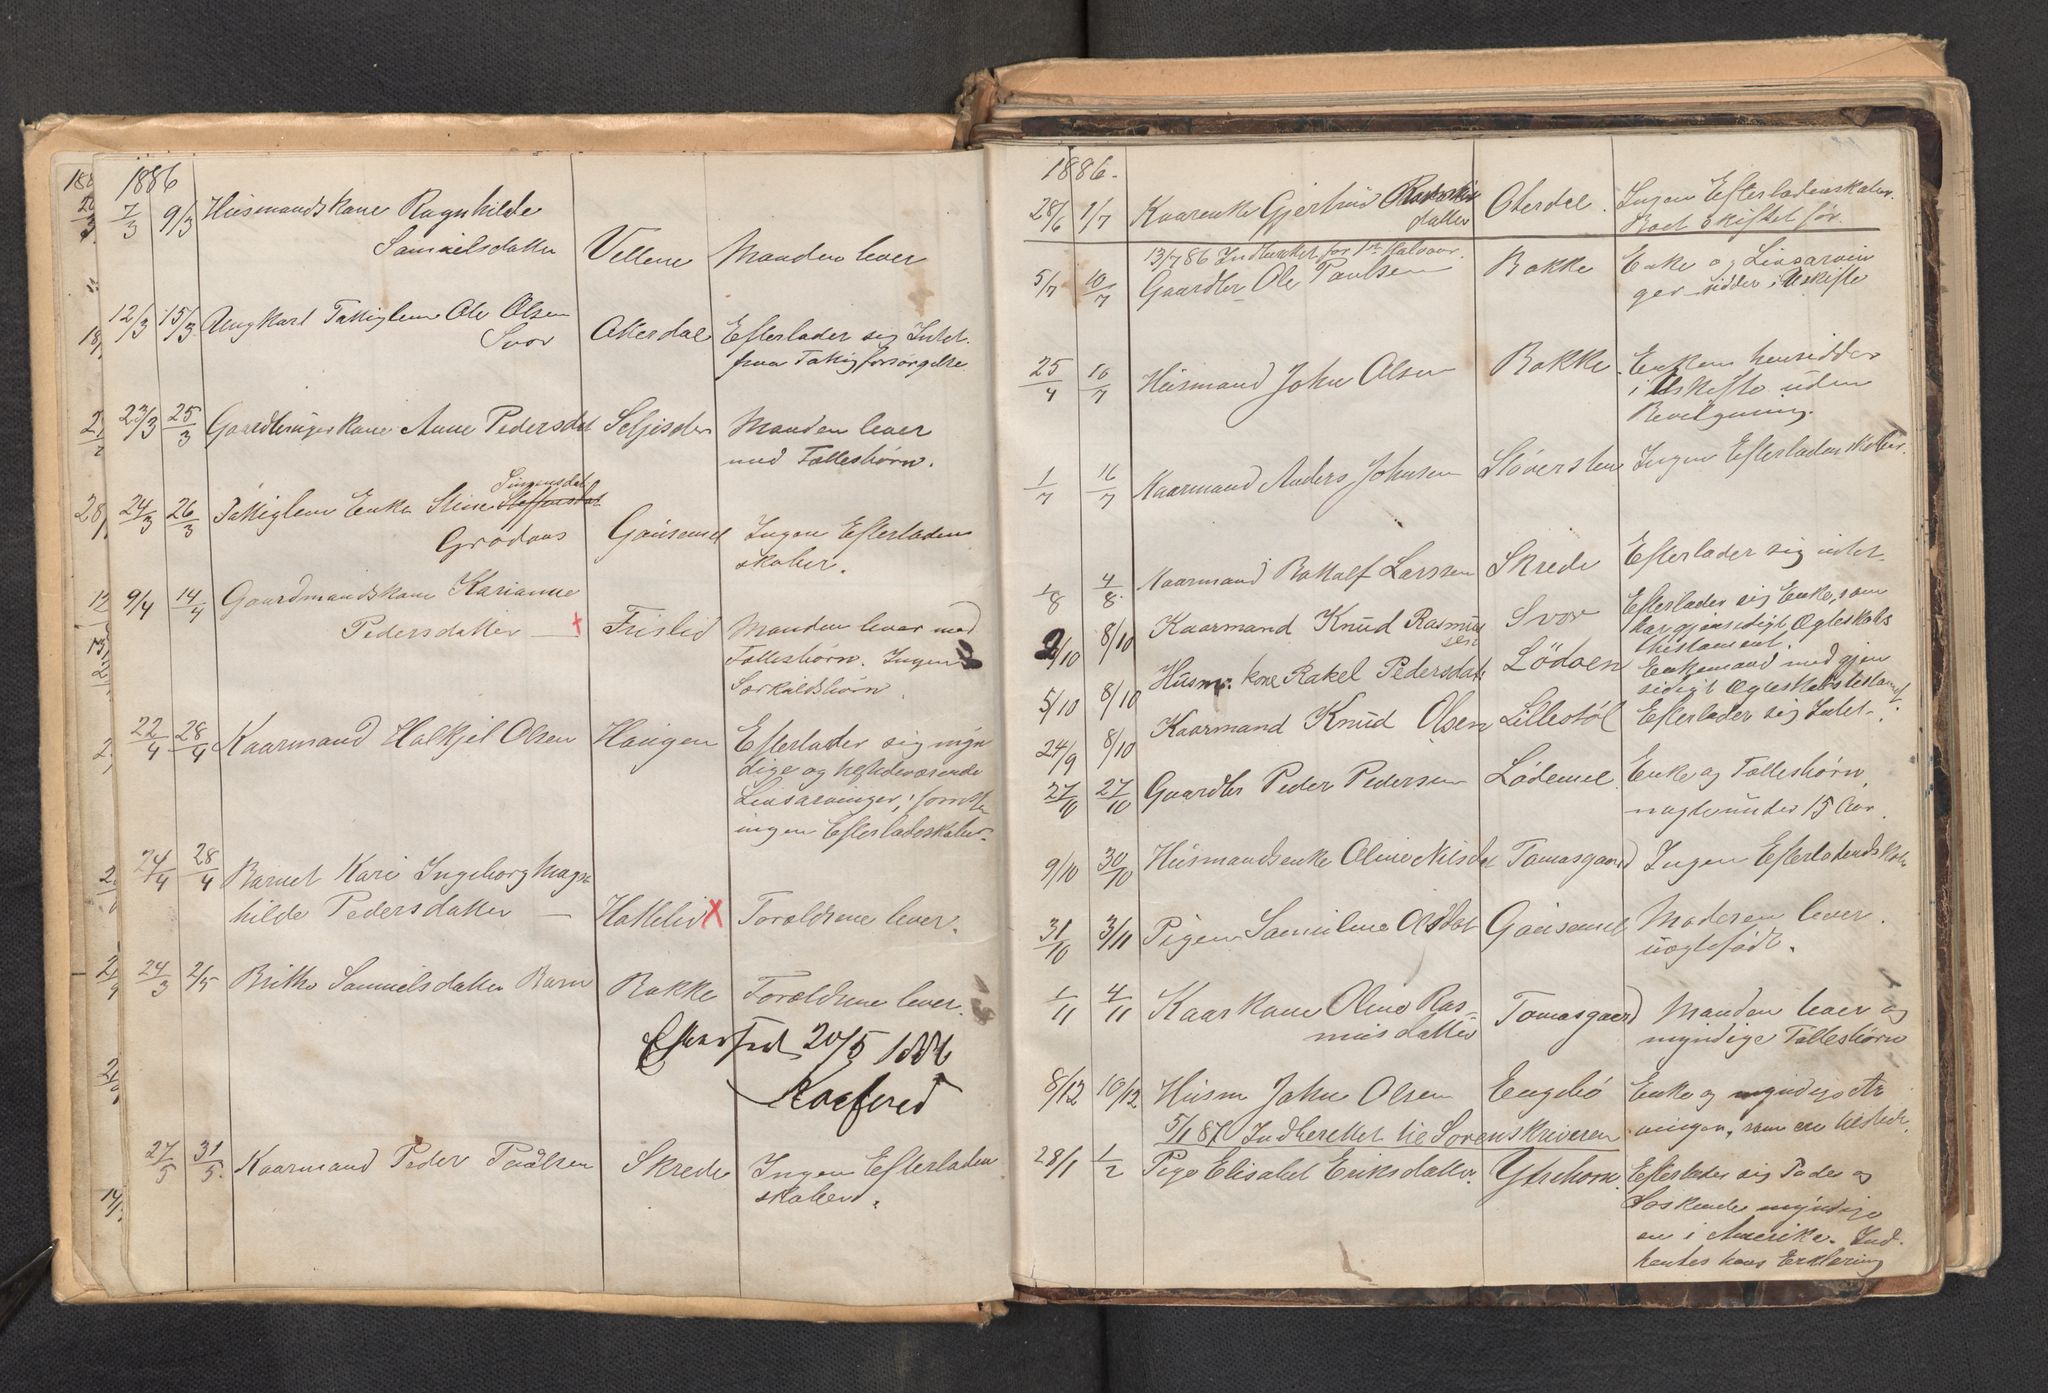 1886
7/3 9/3 Huusmandskone Ragnhilde
Samuelsdatter Vellene Manden lever
12/3 15/3 Ungkarl Fattiglem Ole Olsen
Svor Otterdal Efterlader sig Intet.
paa Fattigforsørgelse
23/3 25/3 Gaardbrugerkone Anne Pedersdat Seljesdn Manden lever
med Fællesbørn.
Simonsdat
24/3 26/3 Fattiglem Enke Stine Steffensdat
Grodaas Gausemel Ingen Efterladen
skaber.
9/4 14/4 Gaardmandskone Karianne
Pedersdatter — x Frislid Manden lever med
Fællesbørn. Ingen
Særkuldsbørn.
22/4 28/4 Kaarmand Halkjel Olsen Haugen Efterlader sig myn
dige og tilstedeværende
Livsarvinger,
ingen Efterladeskaber.
24/4 28/4 Barnet Kari Ingeborg Mag-
hilde Pedersdatter — Hattelid X Forældrene lever.
24/3 2/5 Brithe Samuelsdatter Barn Bakke Forældrene lever.
20/5 1886
27/5 31/5. Kaarmand Peder Paulsen Skrede Ingen Efterladen
skaber.
1886.
28/6 1/7 Kaarenke Gjertrud
datter Oterdal. Ingen Efterladenskaber.
Boet skiftet før.
13/7 86 Indberettet for 1ste Halvaar.
5/7 10/7 Gaardbr Ole Paulsen Bakke Enke og Livsarvin
ger sidder i Uskifte
25/4 10/7 Huusmand John Olsen Bakke Enken hensidder
i Uskifte uden
Bevilgning.
1/7 16/7 Kaarmand Anders Johnsen Støversten Ingen Efterladenskaber.
1/8 4/8. Kaarmand Botolf Larssen Skrede Efterlader sig intet.
2/10 8/10 Kaarmand Knud Rasmus
sen Svor Efterlader sig Enke, som
har gjensidigt Ægteskabs
thistament.
5/10 8/10 Husm. kone Rakel Pedersdat Lödöen Enkemand med gjen
sidigt Ægteskabstestamt.
24/9 8/10 Kaarmand Knud Olsen Lillestøl Efterlader sig Intet.
27/10 27/10 Gaardbr Peder Pedersen Lødemel Enke og Fællesbørn,
nogle under 15 Aar.
9/10 30/10 Huusmandsenke Oline Nilsdat Tomasgaard Ingen Efterladendskabe
31/10 3/11 Pigen Samuline Olsdat Gausemel Moderen lever.
uægtefødt.
1/11 4/11 Kaarkone Oline Ras-
musdatter Tomasgaard Manden lever og
myndige Fællesbørn
8/12 10/12 Huusm John Olsen Engebö Enke og myndige Ar
5/1 87 Indberettet til Sorenskriveren vinger, som ere tilstede.
28/1 1/2 Pige Elisabet Eriksdatter. Ytrehorn. Efterlader sig Fader og
Søskende myndige
en i Amerika. Ind-
hentes hans Erklæring